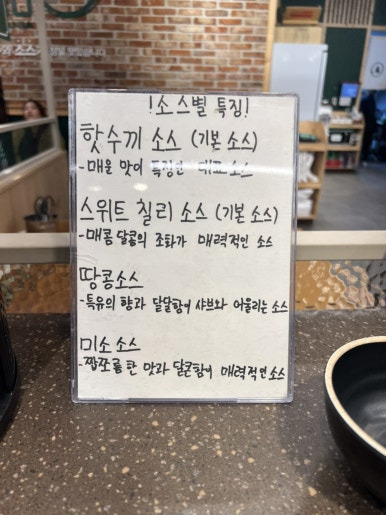 !소스별 특징!
핫수끼 소스 (기본 소스)
-매운 맛이 특징인 대표 소스
스위트 칠리 소스 (기본 소스)
-매콤 달콤의 조화가 매력적인 소스
땅콩소스
-특유의 향과 달달함이 샤브와 어울리는 소스
미소 소스
-짭쪼름한 맛과 달콘함이 매력적인 소스